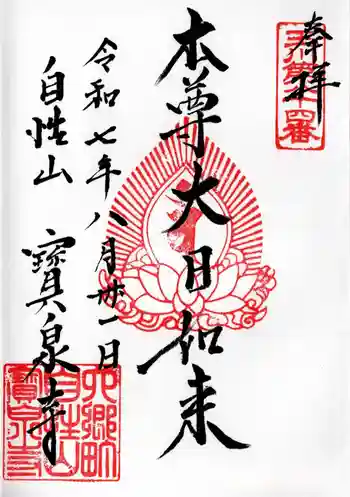 奉拝
本尊大日如来
令和七年八月卅一日
自性山 寳泉寺
六郷町
自性山
寳泉寺